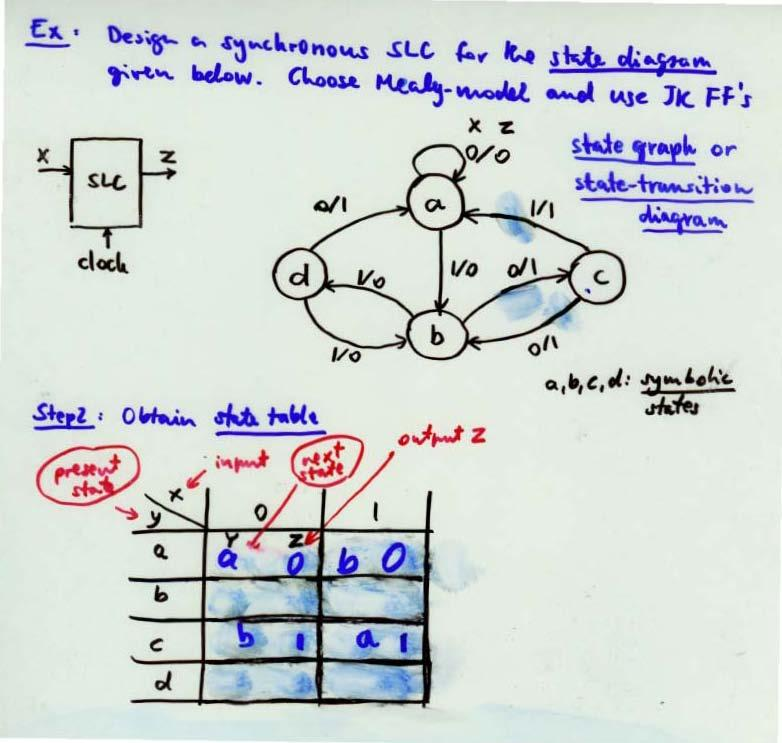 Ex: Design a synchronous SLC for the state diagram
given below. Choose Mealy-model and use JK FF's
X Z
state graph or
state-transition
diagram
X SLC Z
clock
0/0
a
0/1
1/1
d
1/0
1/0
0/1
c
b
1/0
0/1
a,b,c,d: symbolic
states
Step2: Obtain state table
present
state
input
next
state
output Z
x
y
0 1
Y Z
a a 0 b 0
b
c b 1 a 1
d